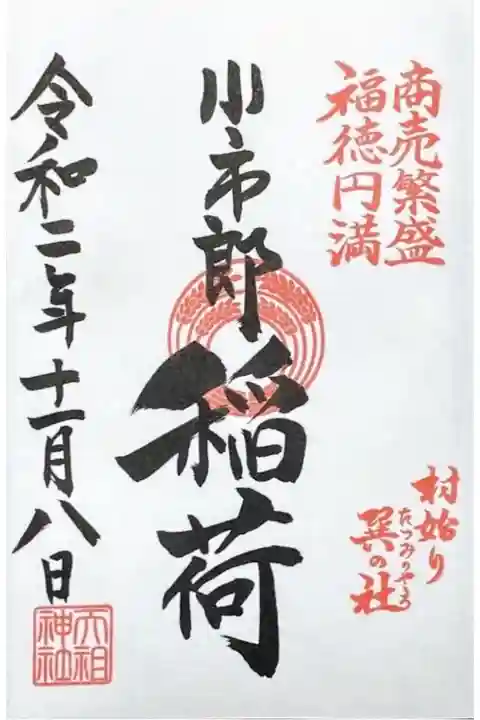 商売繁盛
福徳円満
村始り
巽の社
たつみのやしろ
小市郎稲荷
令和二年十一月八日
天祖
神社